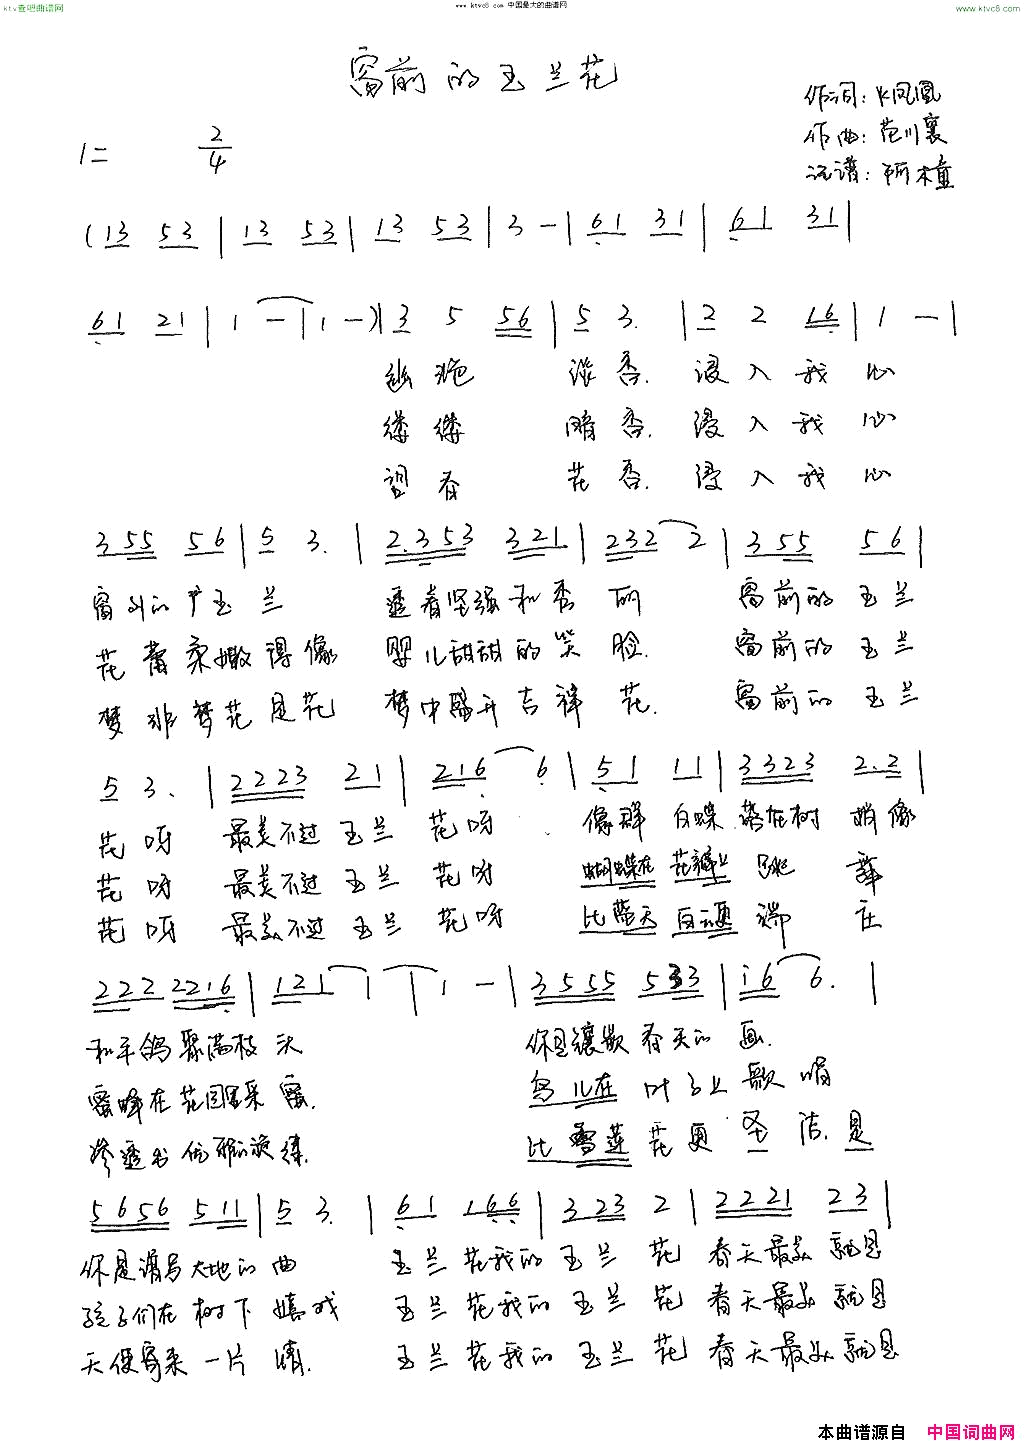 ktv查吧曲谱网
www. ktvc8. com 中国最大的曲谱网
www. ktvc8. com
窗前的玉兰花
作词:火凤凰
作曲:范川襄
记谱:阿木童
1= 2/4
(13 53 | 13 53 | 13 53 | 3 - | 61 31 | 61 31 |
61 21 | 1 - | 1 -)| 3 5 56 | 5 3. | 2 2 16 | 1 - |
淡香. 浸入我心
缕缕 暗香. 浸入我心
望春 花香. 浸入我心
355 56 | 5 3. | 2.353 321 | 232 2 | 355 56 |
窗外的 玉兰 透着坚强和秀丽 窗前的玉兰
花蕾柔嫩得像 婴儿甜甜的笑脸. 窗前的玉兰
梦非梦花是花 梦中盛开吉祥花. 窗前的玉兰
5 3. | 2223 21 | 216 6 | 51 11 | 3323 2.2 |
花呀 最美不过玉兰花呀. 像群白蝶落在树梢像
花呀 最美不过玉兰花呀 蝴蝶在花瓣上跳舞
花呀 最美不过玉兰花呀 比蓝天白云更端庄
222 2216 | 121 1 | 1 - | 3555 533 | i6 6. |
和平鸽聚满枝头 你是镶嵌春天的画.
蜜蜂在花园里采蜜. 鸟儿在叶子上歌唱
渗透出优雅的旋律. 比雪莲花更圣洁.是
5656 511 | 5 3. | 61 166 | 323 2 | 2221 23 |
你是谱写大地的曲 玉兰花我的玉兰花 春天最美就是
孩子们在树下嬉戏 玉兰花我的玉兰花 春天最美就是
天使寄来一片情. 玉兰花我的玉兰花 春天最美就是
本曲谱源自 中国词曲网